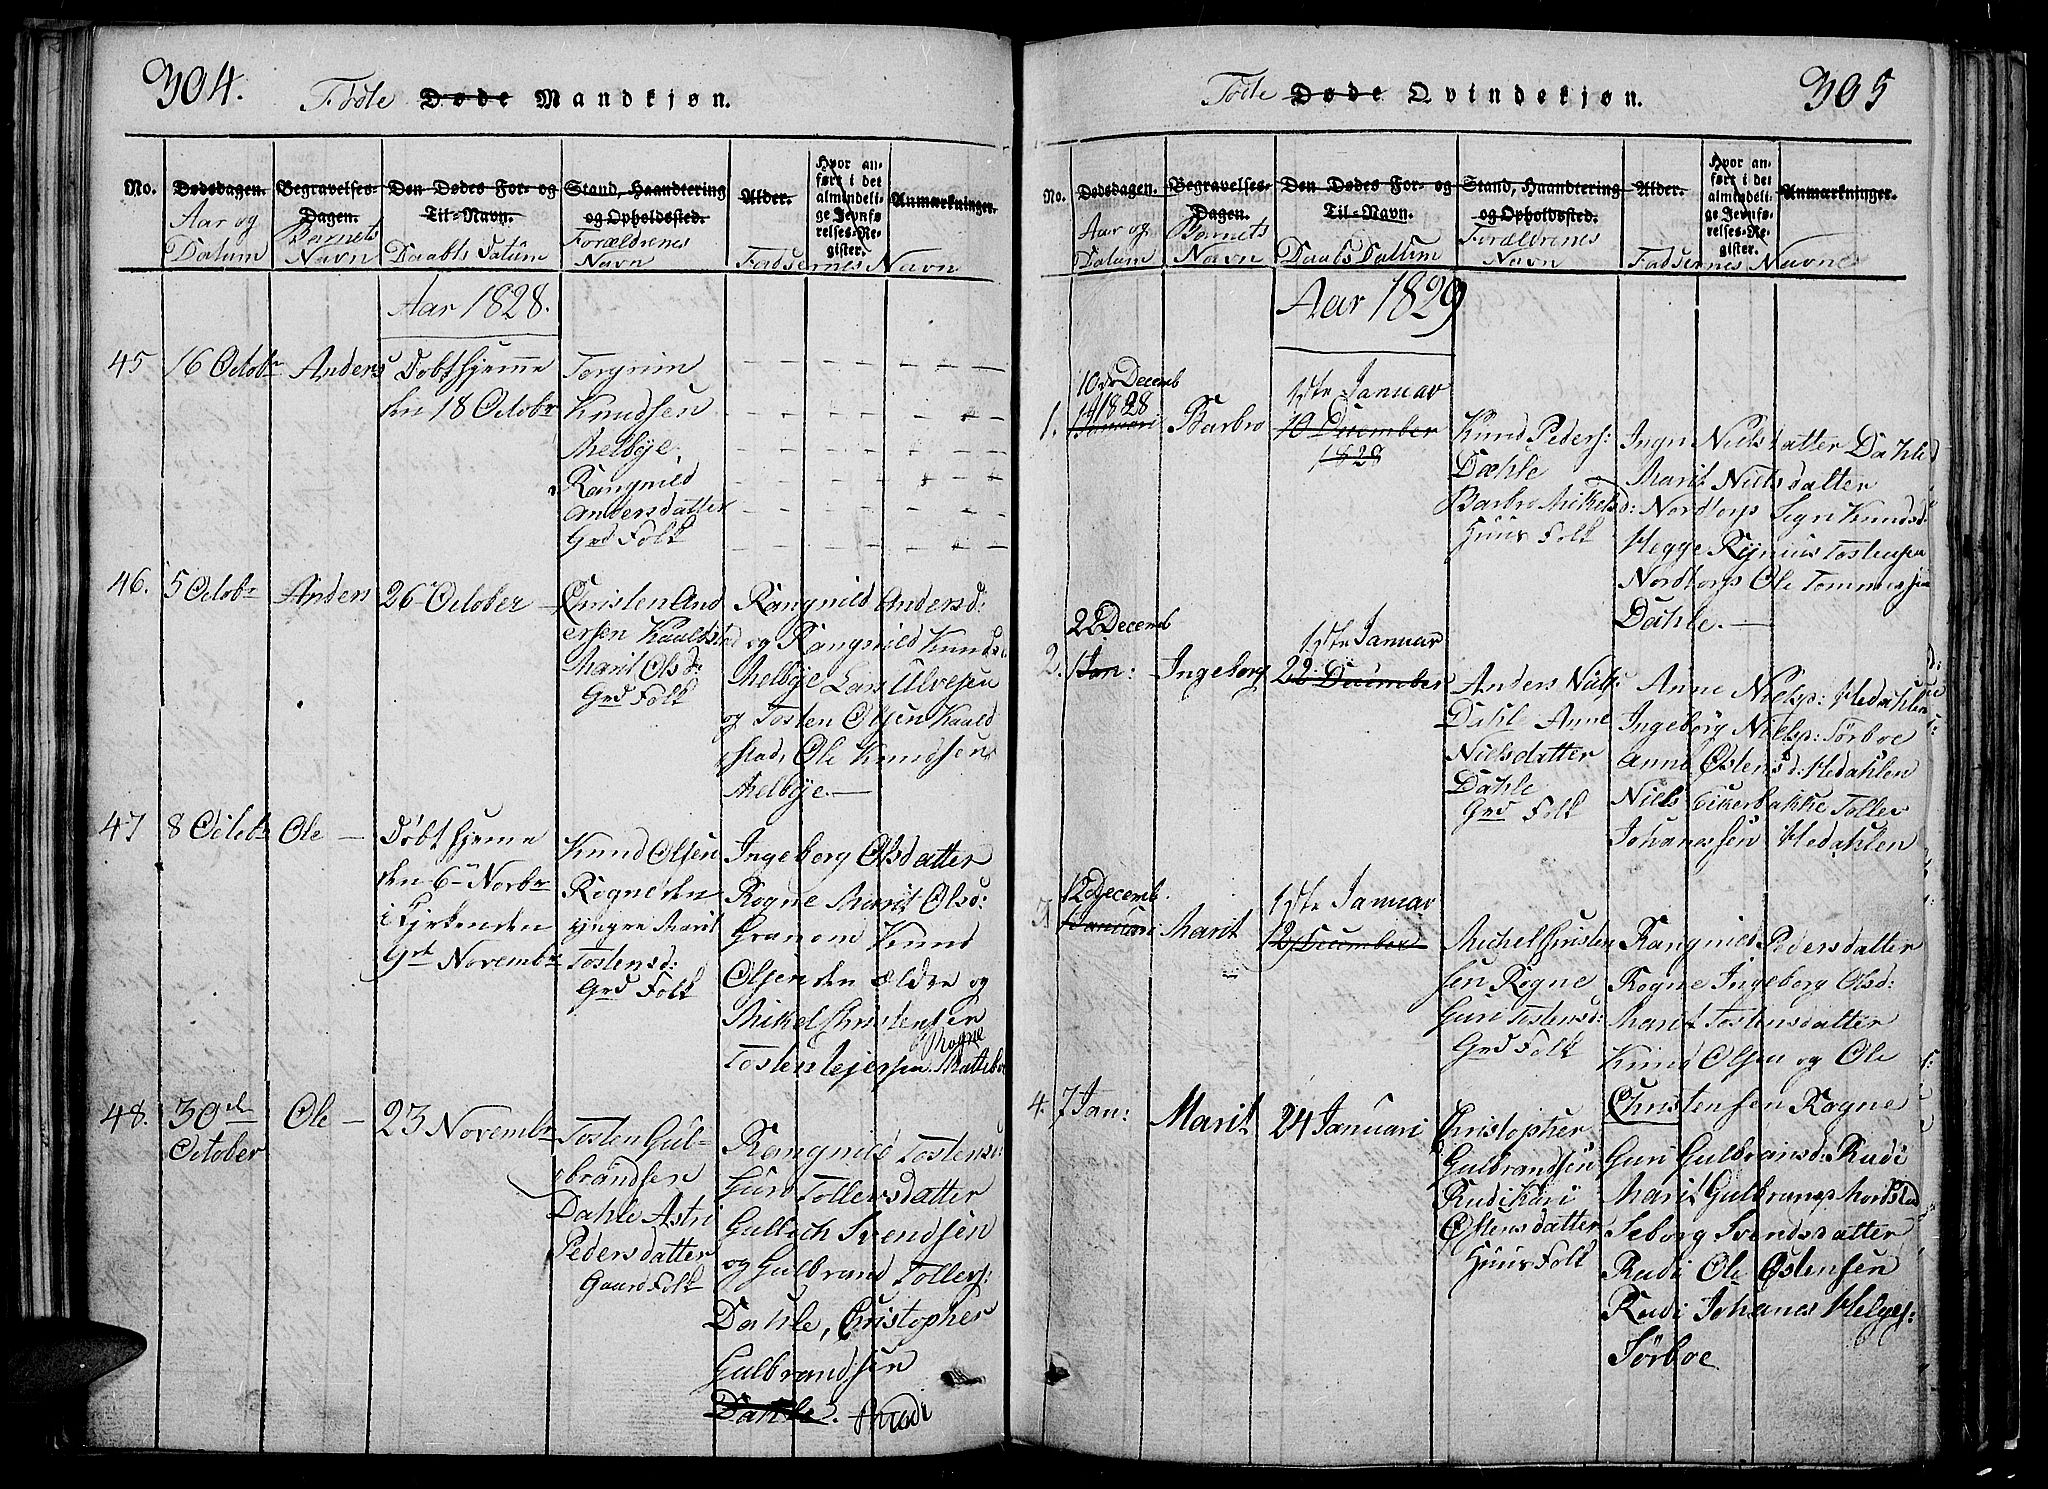 304.
Fødte Døde Mandkjøn.
No.
Dødsdagen.
Aar og
Datum
Begravelses-
Dagen.
Barnets
Navn
Den Dødes For- og
Til-Navn.
Daabts Datum
Stand, Haandtering
og Opholdssted.
Forældrenes
Navn
Alder.
Hvor an-
ført i det
almindeli-
ge Jevnfø-
relses-Re-
gister.
Anmærkninger.
Faddernes Navn
Aar 1828.
45
16 Octobr
Anders
Døbt hjemme
den 18 Octobr
Torgrim
Knudsen
Melbye
Rangnild
Andersdatter
Grd Folk
46.
5 Octobr
Anders
26 October
Christen And
ersen Kaalstad
Marit Olsd:
Grd Folk
Rangnild Andersd:
og Rangnild Knuds
Melbye Lars Alvesen
og Tosten Olsen Kaald
stad, Ole Knudsen
Melbye.
47
8 Octobr
Ole
Døbt hjeme
den 6 Novbr
i Kirken den
9de Novembr
Knud Olsen
Rogne den
yngre Marit
Tostensd:
Grd Folk
Ingeborg Olsdatter
Rogne Marit Olsd:
Granom Knud
Olsen den ældre og
Mikel Christensen
Rogne
48.
30de
October
Ole
23 Novembr
Tosten Gul-
brandsen
Dahle Astri
Pedersdatter
Gaard Folk
Rangnild Tostens
Guro Tollersdatter
Gullech Svendsen
og Gulbrand Tollers:
Dahle, Christopher
Gulbrandsen
Dahle. Rudi
305
Føde Døde Qvindekjøn.
No.
Dødsdagen.
Aar og
Datum
Begravelses-
Dagen.
Barnets
Navn
Den Dødes For- og
Til-Navn.
Daabs Datum
Stand, Haandtering
og Opholdssted.
Forældrenes
Navn
Alder.
Hvor an-
ført i det
almindeli-
ge Jevnfø-
relses-Re-
gister.
Anmærkninger.
Faddernes Navne
Aar 1829
1.
10de Decemb
1828
Barbro
1ste Januar
10 December
1828
Knud Peders:
Dæhle
Barbro Mikelsd:
Huus Folk
Ingri Nielsdatter Dahle
Marit Nielsdatter
Nordtorp Segri Knudsd:
Hegge
Nordtorp Ole Tommessen
Dahle.
2.
22 Decemb
1 Jan:
Ingeborg
1ste Januar
22 December
Anders Niels
Dahl Anne
Nielsdatter
Dahle
Grd Folk
Anne Nielsp: Hedahlen
Ingeborg Nielsp: Sørboe
Anne Østensd: Hedahlen
Niels Eikerbakke Toller
Johanessen Hedahlen
3.
12 Decemb.
1 Januari
Marit
1ste Januar
12 December
Michel Christen
sen Rogne
Guri Tostensd:
Grd Folk
Rangnild Pedersdatter
Rogne Ingeborg Olsd:
Marit Tostensdatter
Knud Olsen og Ole
Christensen Rogne
4.
7 Jan:
Marit
24 Januari
Christopher
Gulbrandsen
Rudi Kari
Østensdatter
Huus Folk
Guri Gulbransd: Rudi
Marit Gulbransp
Seborg Svendsdatter
Rudi Ole Østensen
Rudi Johanes Helges:
Sørboe